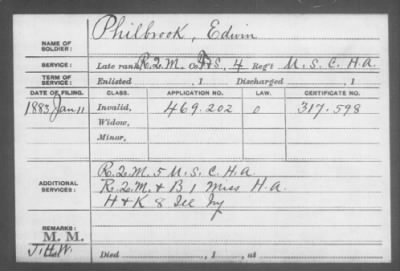 Philbrook, Edwin
NAME OF SOLDIER:
SERVICE: Late rank R.Q.M. Co. F&S, 4 Reg't U.S.C.H.A.
TERM OF SERVICE: Enlisted , 1 Discharged , 1
DATE OF FILING. CLASS. APPLICATION NO. LAW. CERTIFICATE NO.
1883 Jan 11 Invalid, 469.202 0 317.598
Widow,
Minor,
R.Q.M. 5 U.S.C.H.A.
ADDITIONAL SERVICES: R.Q.M. & B 1 Miss H.A.
H & K 8 Ill Inf
REMARKS:
M. M.
J.H.W. Died , 1 , at